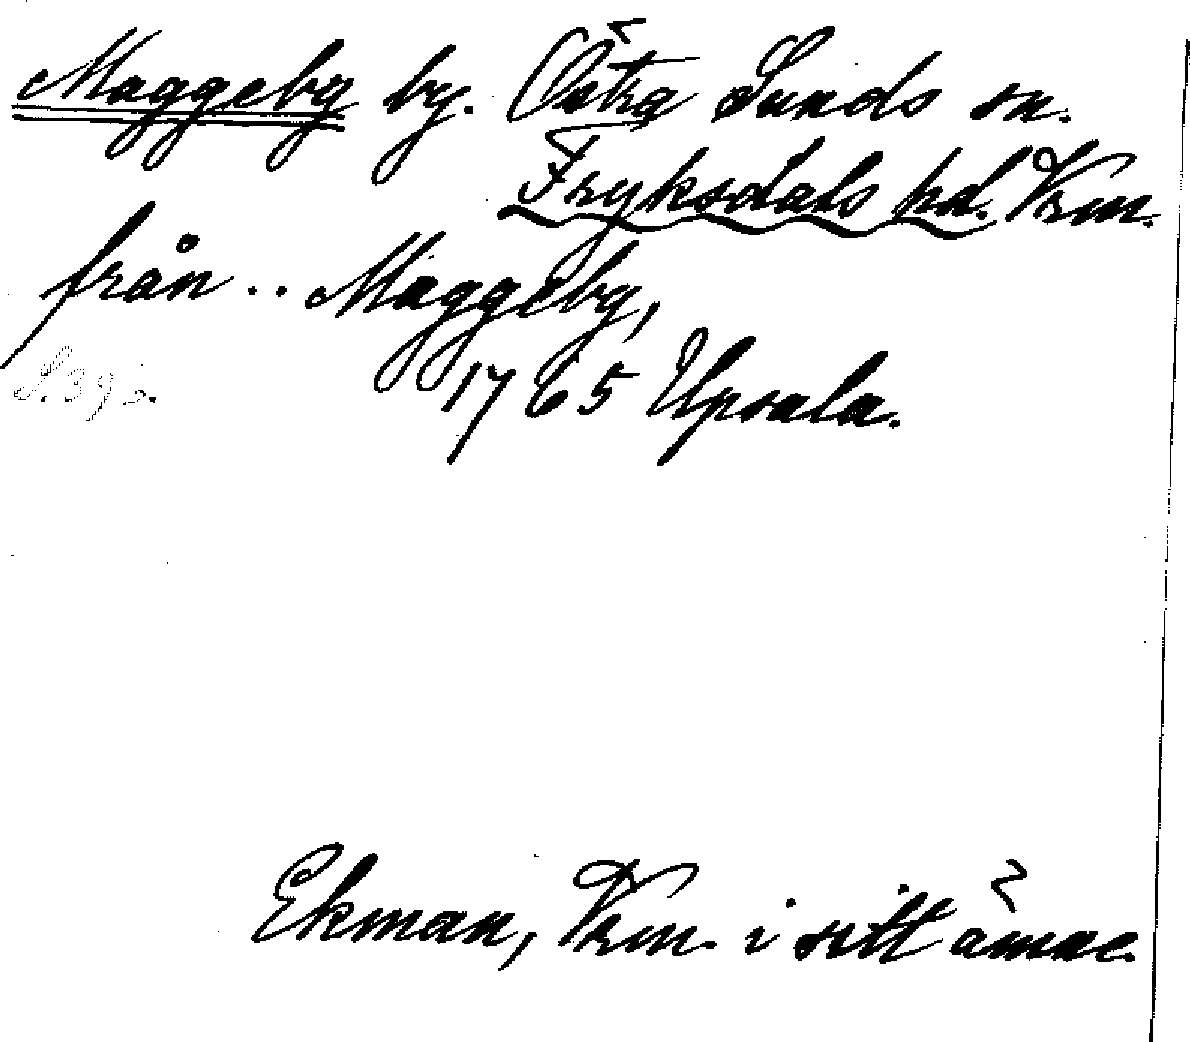 Maggeby by. Östra Sunds sn.
Fryksdals hd. Vrm.
från .. Maggeby,
1765 Upsala.
S. 39
Ekman, Vrm. i sitt ämne.